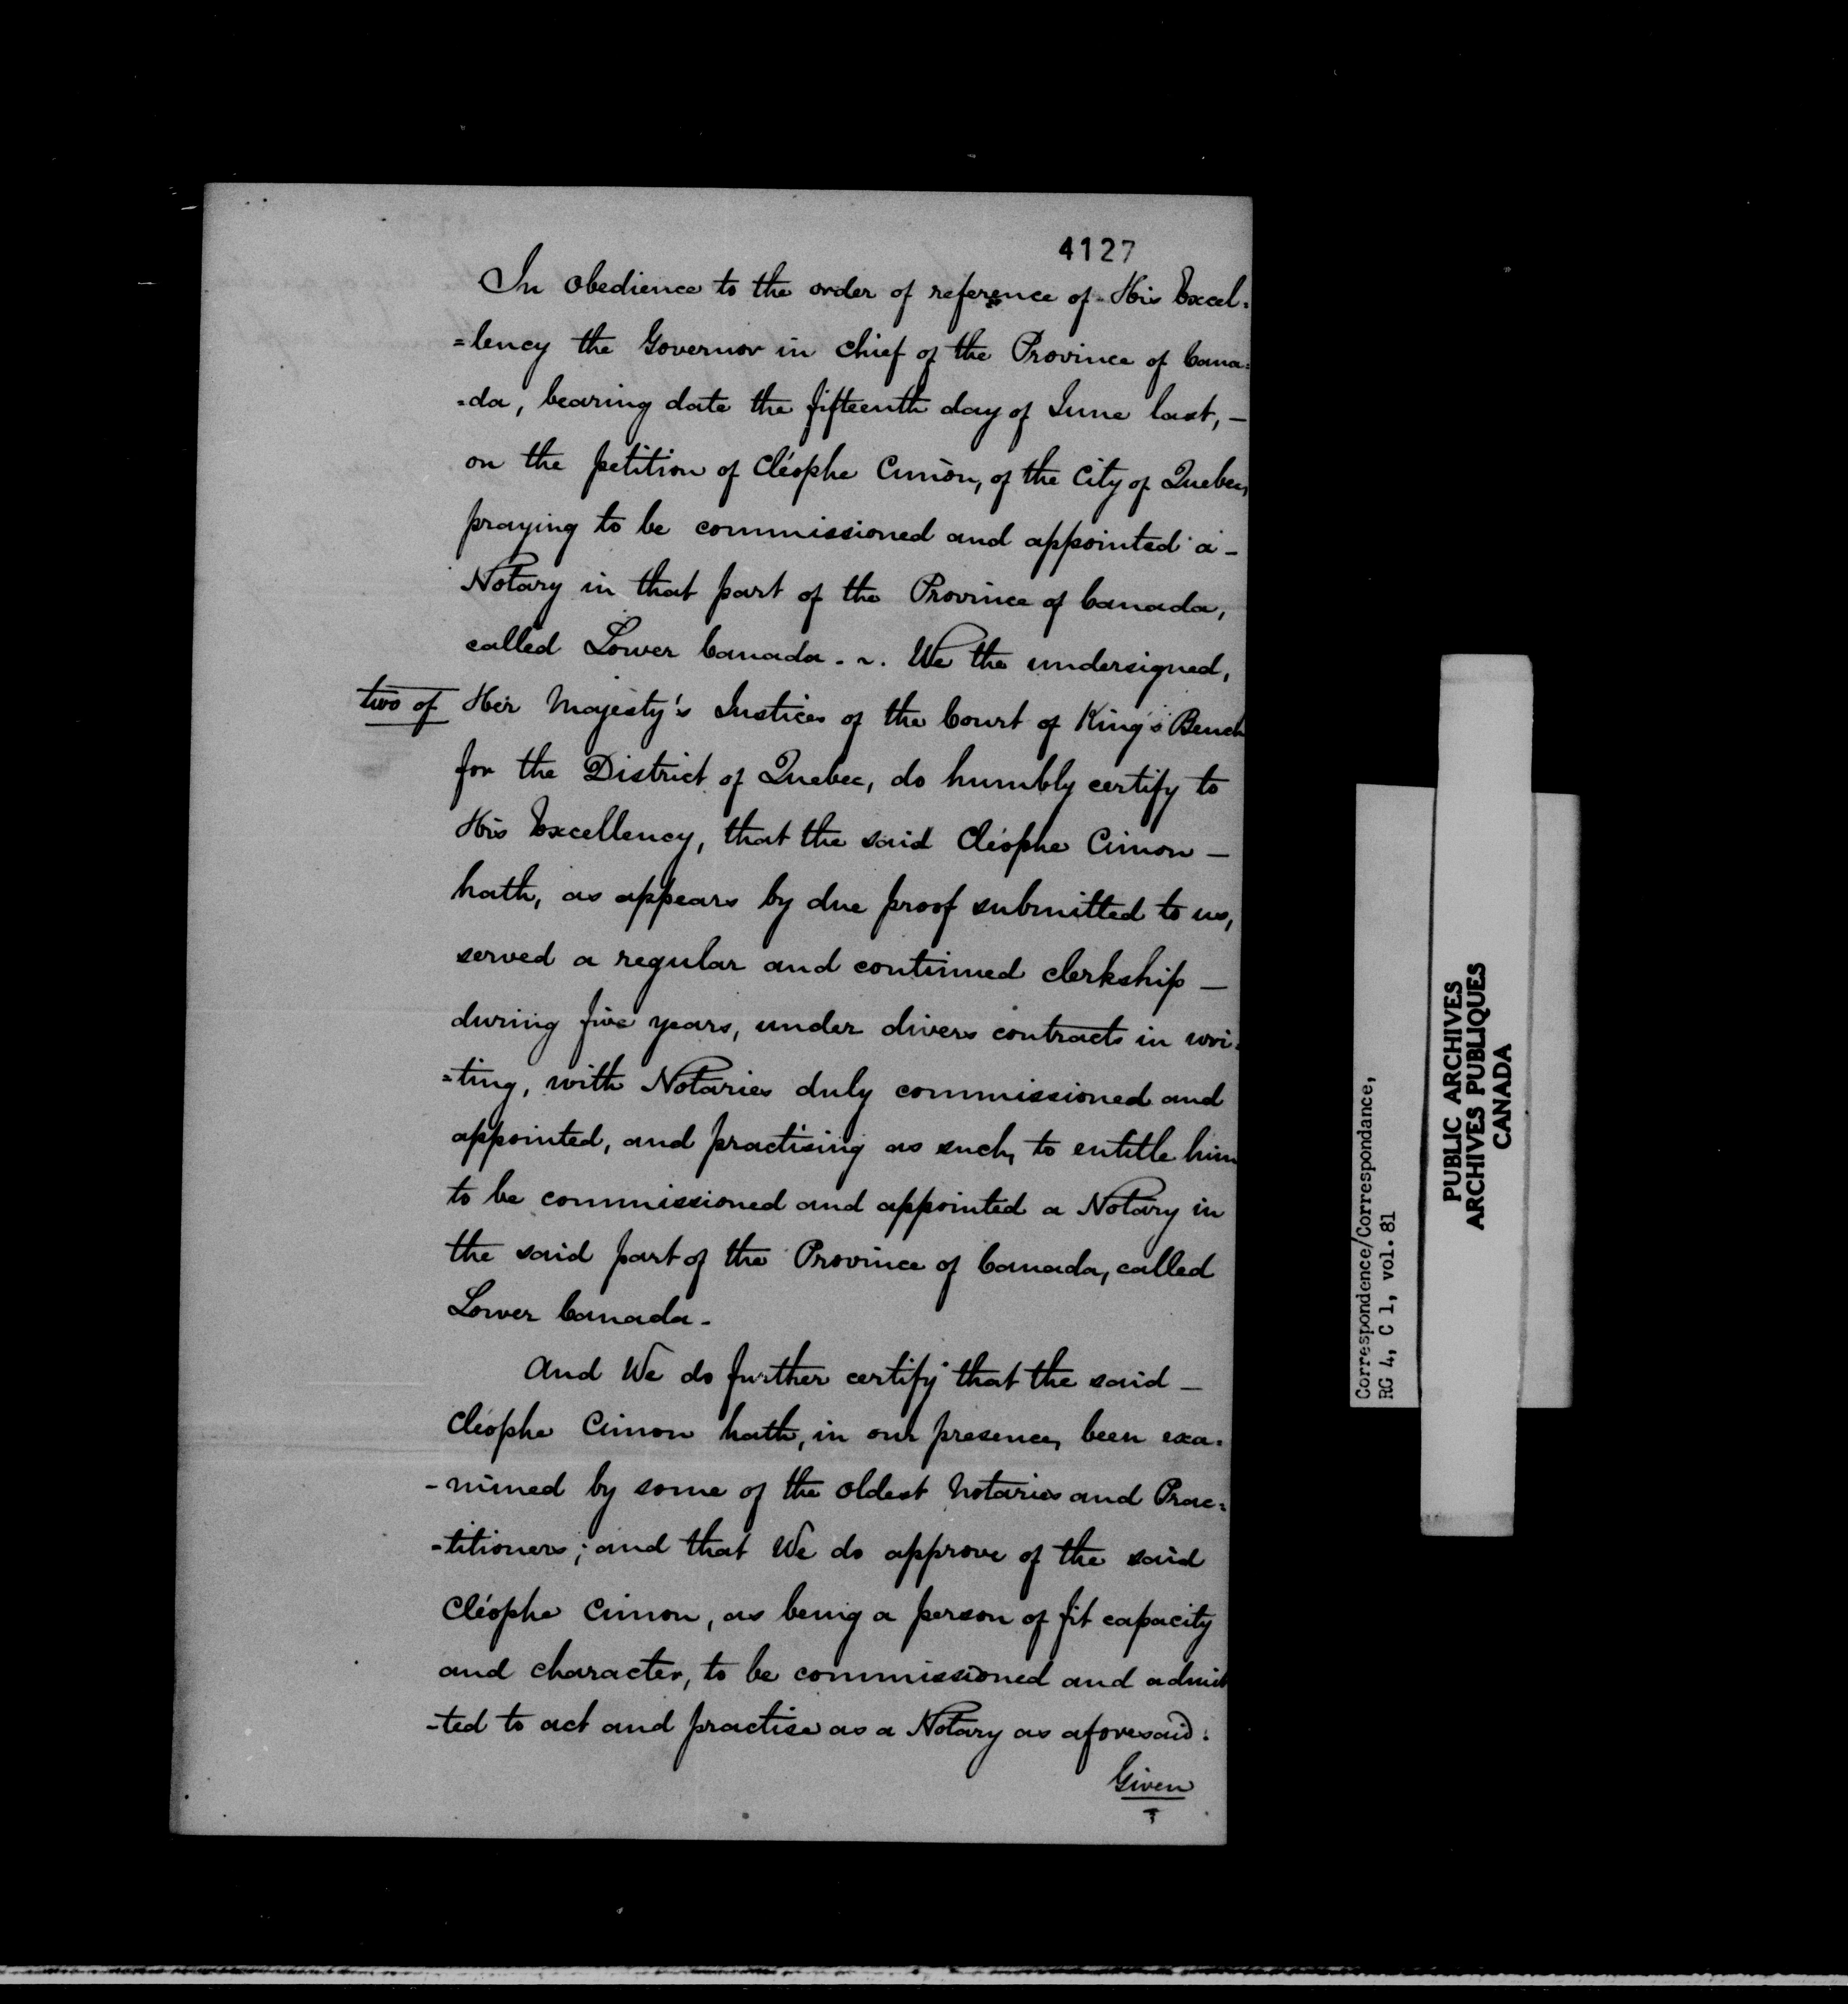 4127
In obedience to the order of reference of His Excel=
=lency the Governor in chief of the Province of Cana=
=da, bearing date the fifteenth day of June last, —
on the petition of Cléophe Cimon, of the City of Quebec,
praying to be commissioned and appointed a —
Notary in that part of the Province of Canada,
called Lower Canada. ~. We the undersigned,
two of Her Majesty's Justices of the Court of King's Bench
for the District of Quebec, do humbly certify to
His Excellency, that the said Cléophe Cimon —
hath, as appears by due proof submitted to us,
served a regular and continued clerkship —
during five years, under divers contracts in wri=
=ting, with Notaries duly commissioned and
appointed, and practising as such, to entitle him
to be commissioned and appointed a Notary in
the said part of the Province of Canada, called
Lower Canada.
And We do further certify that the said —
Cléophe Cimon hath, in our presence, been exa=
-mined by some of the oldest Notaries and Prac=
-titioners; and that We do approve of the said
Cléophe Cimon, as being a person of fit capacity
and character, to be commissioned and admit
-ted to act and practise as a Notary as aforesaid.
Given
Correspondence/Correspondance,
RG 4, C 1, vol. 81
PUBLIC ARCHIVES
ARCHIVES PUBLIQUES
CANADA